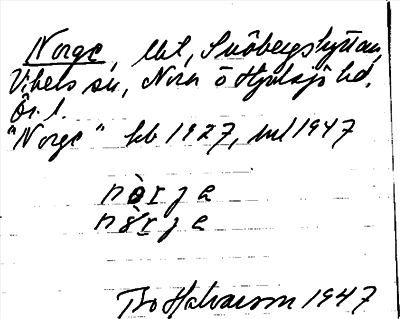 Norge, lht, Snöbergshyttan,
Vikers sn, Nora o Hjulsjö hd.
Ör. l.
"Norge" kb 1927, ml 1947
nòrje
nòrje
Bo Halvarson 1947